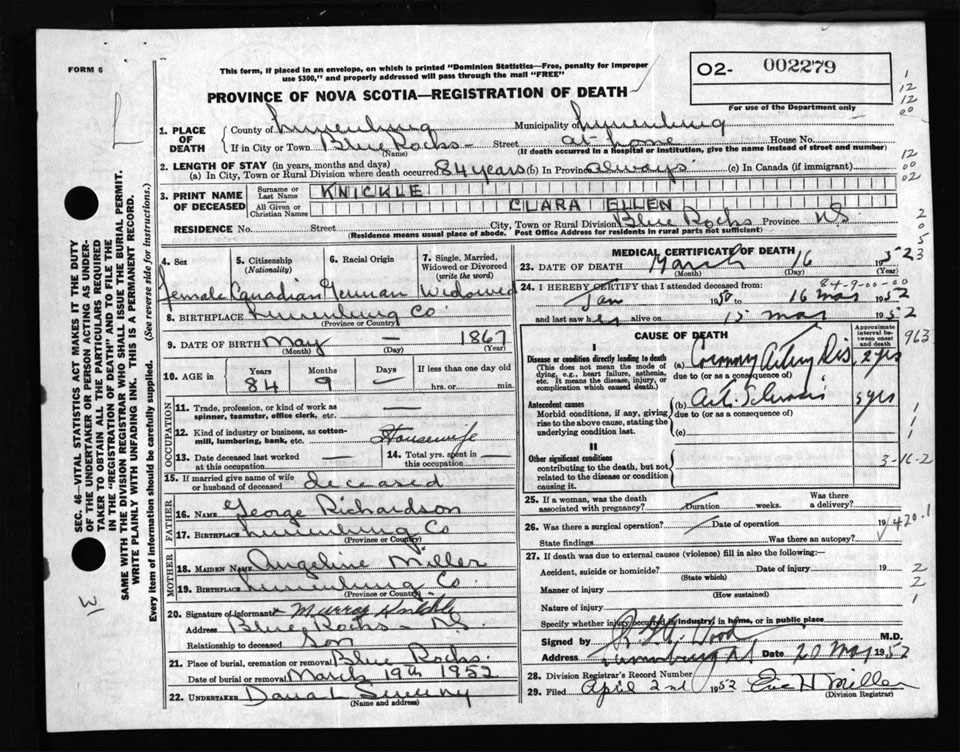 FORM 6
This form, if placed in an envelope, on which is printed "Dominion Statistics—Free, penalty for improper use $300," and properly addressed will pass through the mail "FREE"
O2- 002279
For use of the Department only
PROVINCE OF NOVA SCOTIA—REGISTRATION OF DEATH
1. PLACE OF DEATH
County of Lunenburg Municipality of Lunenburg
If in City or Town Blue Rocks Street at home House No.
(Name) (If death occurred in a hospital or institution, give the name instead of street and number)
2. LENGTH OF STAY (in years, months and days)
(a) In City, Town or Rural Division where death occurred 84 years (b) In Province always (c) In Canada (if immigrant)
3. PRINT NAME OF DECEASED
Surname or Last Name KNICKLE
All Given or Christian Names CLARA ELLEN
RESIDENCE No. Street City, Town or Rural Division Blue Rocks Province N.S.
(Residence means usual place of abode. Post Office Address for residents in rural parts not sufficient)
4. Sex Female
5. Citizenship (Nationality) Canadian
6. Racial Origin German
7. Single, Married, Widowed or Divorced (write the word) Widowed
8. BIRTHPLACE Lunenburg Co
(Province or Country)
9. DATE OF BIRTH May — 1867
(Month) (Day) (Year)
10. AGE in Years 84 Months 9 Days — If less than one day old hrs. or min.
OCCUPATION
11. Trade, profession, or kind of work as spinner, teamster, office clerk, etc. —
12. Kind of industry or business, as cotton-mill, lumbering, bank, etc. Housewife
13. Date deceased last worked at this occupation —
14. Total yrs. spent in this occupation —
15. If married give name of wife or husband of deceased deceased
FATHER
16. NAME George Richardson
17. BIRTHPLACE Lunenburg Co
(Province or Country)
MOTHER
18. MAIDEN NAME Angeline Miller
19. BIRTHPLACE Lunenburg Co.
(Province or Country)
20. Signature of informant x Murray Knickle
Address Blue Rocks N.S.
Relationship to deceased Son
21. Place of burial, cremation or removal Blue Rocks.
Date of burial or removal March 19th 1952
22. UNDERTAKER Dana L Sweeny
(Name and address)
MEDICAL CERTIFICATE OF DEATH
23. DATE OF DEATH March 16 1952
(Month) (Day) (Year)
84-9-00-00
24. I HEREBY CERTIFY that I attended deceased from:
Jan 1950 to 16 Mar 1952
and last saw h er alive on 15 Mar 1952
CAUSE OF DEATH
Approximate interval between onset and death
I
Disease or condition directly leading to death
(This does not mean the mode of dying, e.g., heart failure, asthenia, etc. It means the disease, injury, or complication which caused death.)
(a) Coronary Artery Dis. 2 yrs
due to (or as a consequence of)
Antecedent causes
Morbid conditions, if any, giving rise to the above cause, stating the underlying condition last.
(b) Art. Sclerosis 5 yrs
due to (or as a consequence of)
(c)
II
Other significant conditions
contributing to the death, but not related to the disease or condition causing it.
3-16-2
25. If a woman, was the death associated with pregnancy? Duration weeks. Was there a delivery?
26. Was there a surgical operation? Date of operation 19
State findings Was there an autopsy?
420.1
27. If death was due to external causes (violence) fill in also the following:—
Accident, suicide or homicide? Date of injury 19
(State which)
Manner of injury
(How sustained)
Nature of injury
Specify whether injury occurred in industry, in home, or in public place
Signed by Wood M.D.
Address Lunenburg NS Date 20 Mar 1952
28. Division Registrar's Record Number
29. Filed April 2nd 1952 Miller
(Division Registrar)
SEC. 46—VITAL STATISTICS ACT MAKES IT THE DUTY OF THE UNDERTAKER OR PERSON ACTING AS UNDERTAKER TO OBTAIN ALL THE PARTICULARS REQUIRED IN THE "REGISTRATION OF DEATH" AND TO FILE THE SAME WITH THE DIVISION REGISTRAR WHO SHALL ISSUE THE BURIAL PERMIT.
WRITE PLAINLY WITH UNFADING INK. THIS IS A PERMANENT RECORD.
Every item of information should be carefully supplied. (See reverse side for instructions.)
1
12
12
00
12
00
02
2
0
5
23
963
1
1
1
2
2
1